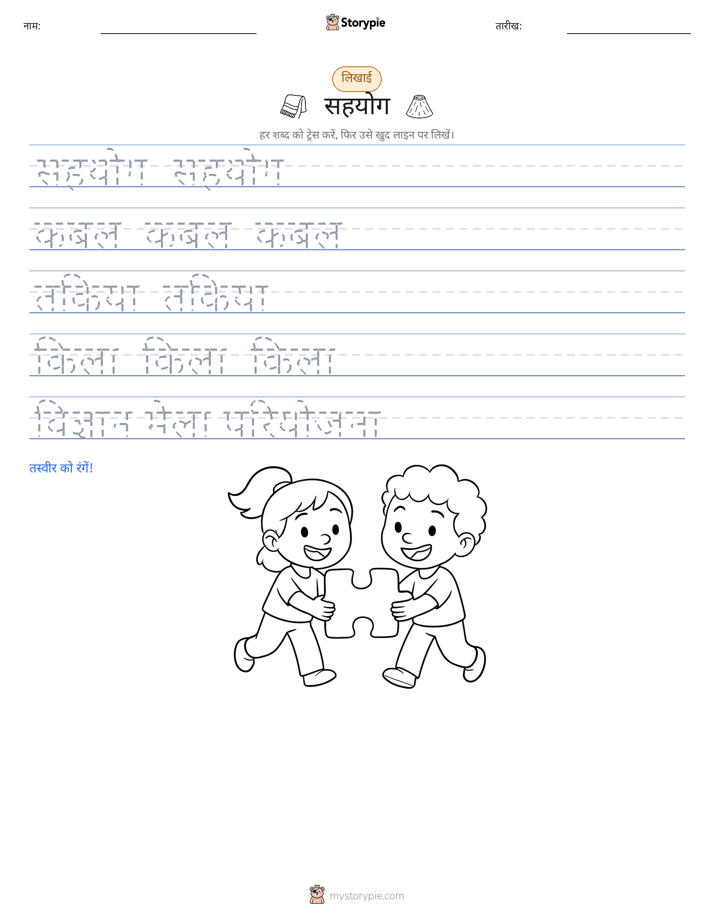 नाम: Storypie तारीख:
लिखाई
सहयोग
हर शब्द को ट्रेस करें, फिर उसे खुद लाइन पर लिखें।
सहयोग सहयोग
कंबल कंबल कंबल
तकिया तकिया
किला किला किला
विज्ञान मेला परियोजना
तस्वीर को रंगें!
mystorypie.com